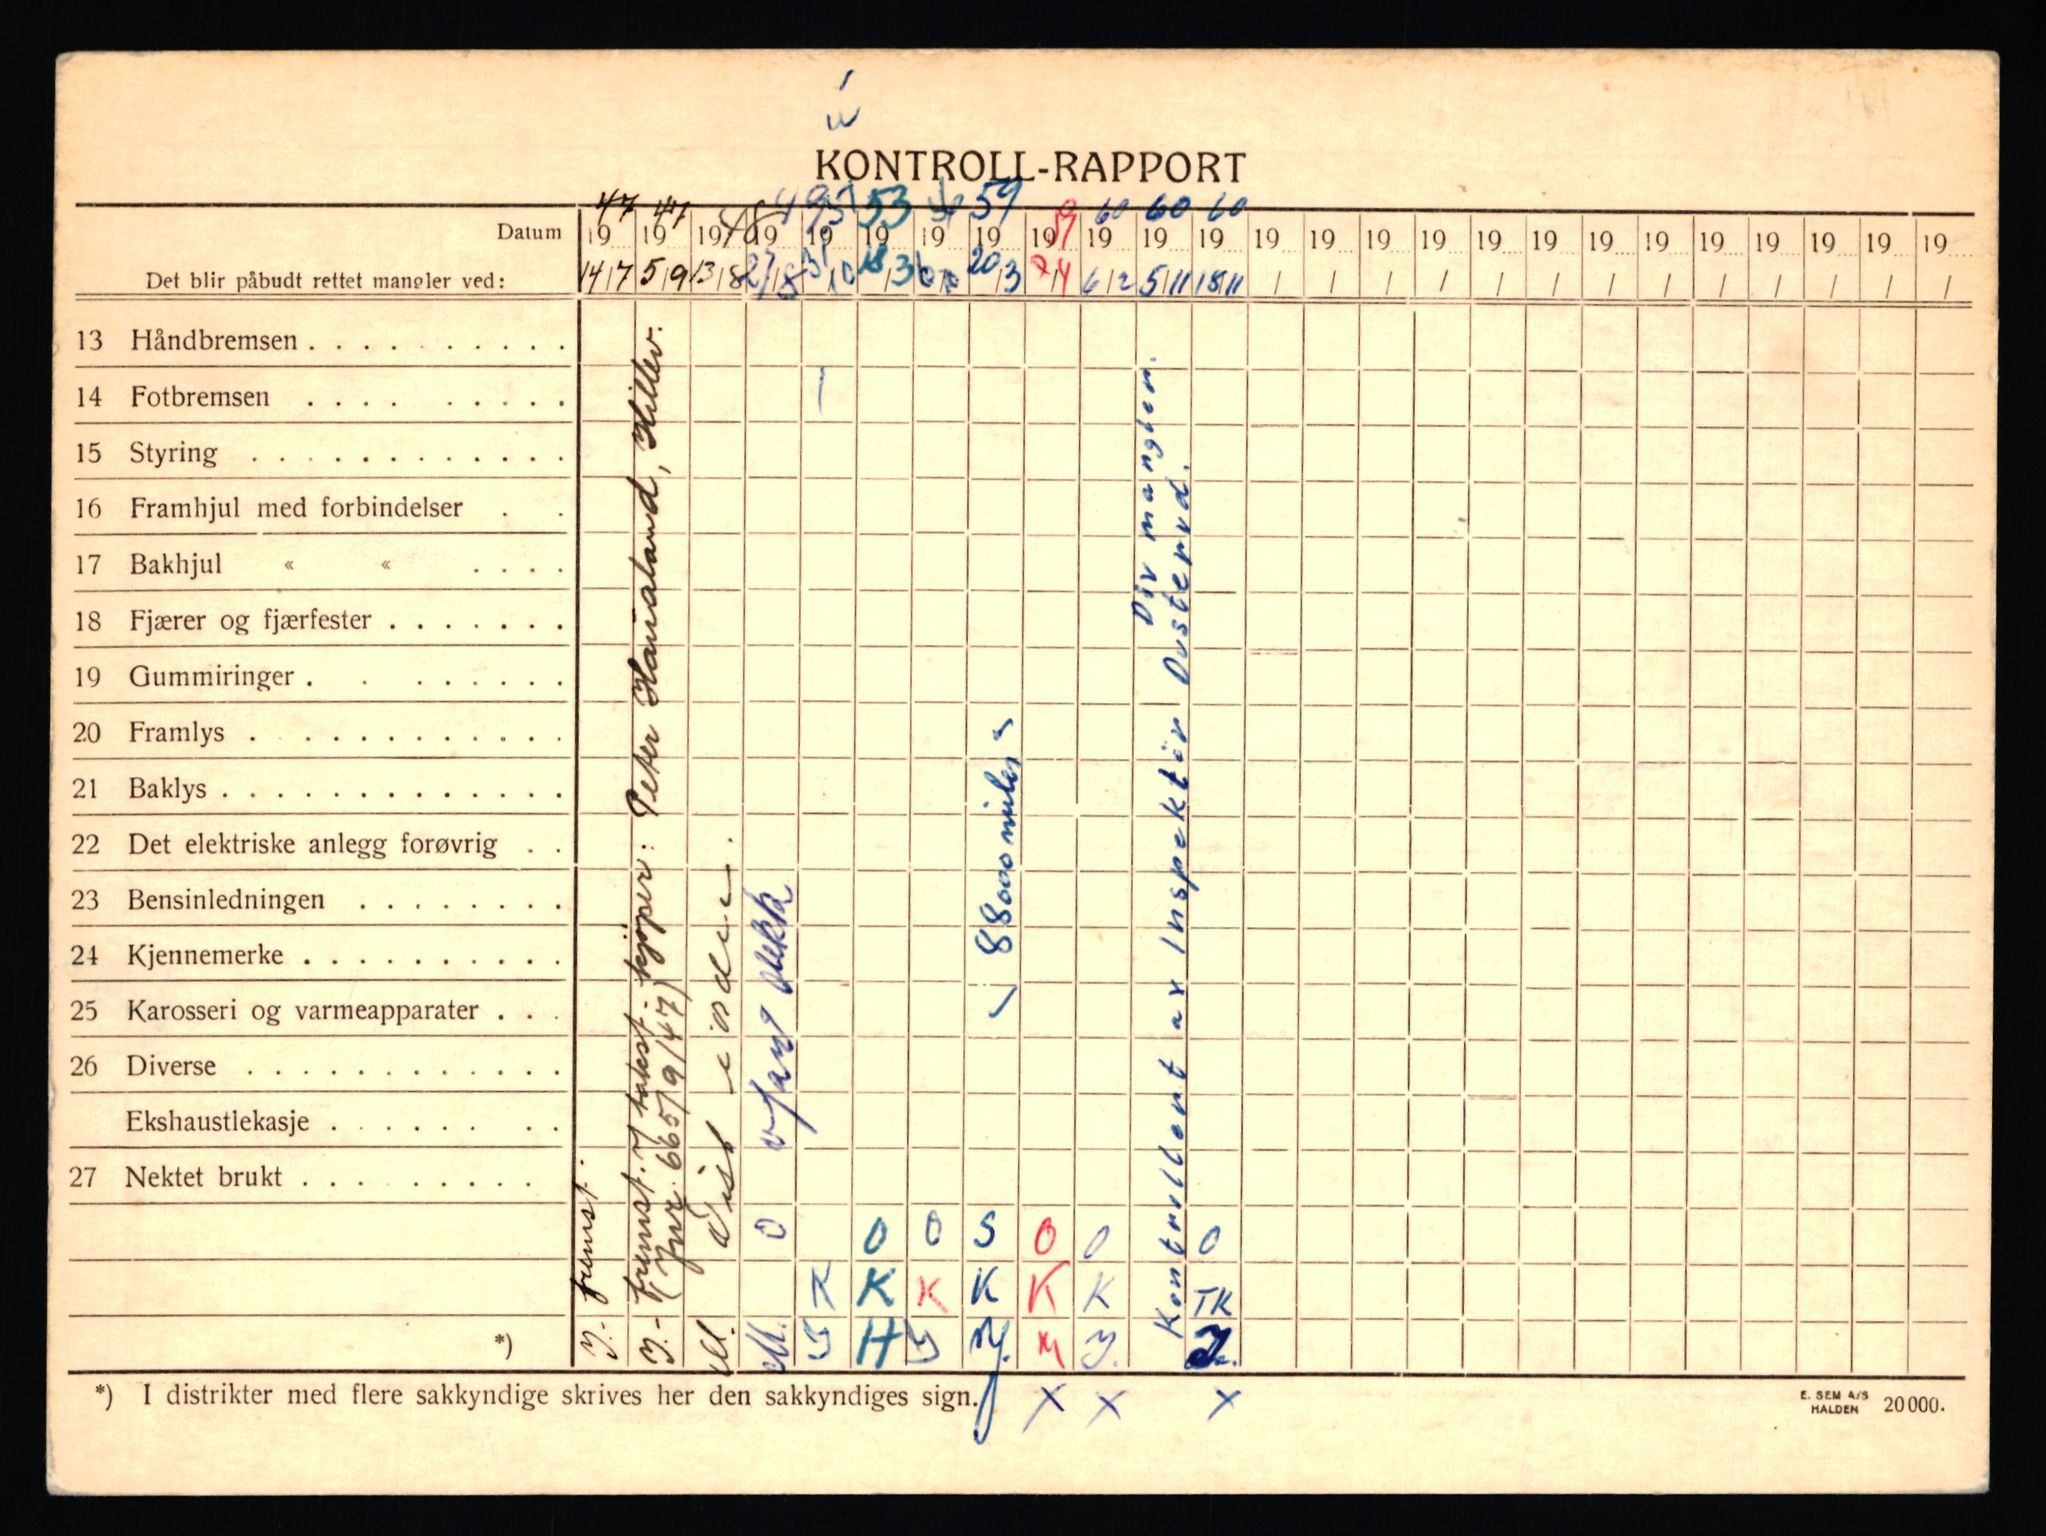 KONTROLL-RAPPORT
47 47 48 49 53 59 60 60 60
Datum 19 19 19 19 19 19 19 19 19 19 19 19 19 19 19 19 19 19 19 19 19 19 19 19 19
Det blir påbudt rettet mangler ved: 14/7 5/9 13/8 27/8 18/3 20/3 6/2 5/11 18/11 / / / / / / / / / / / / /
13 Håndbremsen . . . . . . . . . .
14 Fotbremsen . . . . . . . . .
15 Styring . . . . . . . . . . . .
16 Framhjul med forbindelser . .
17 Bakhjul « « . . . .
18 Fjærer og fjærfester . . . . . . .
19 Gummiringer . . . . . . . . .
20 Framlys . . . . . . . . . . .
21 Baklys . . . . . . . . . . . . .
22 Det elektriske anlegg forøvrig . .
23 Bensinledningen . . . . . . . .
24 Kjennemerke . . . . . . . . . .
25 Karosseri og varmeapparater . . .
26 Diverse . . . . . . . . . . . .
Ekshaustlekasje . . . . . . . .
27 Nektet brukt . . . . . . . . .
Y.- fremst.
Y.- fremst. kjøper: Peter Haualand, Hillev.
(Jnr. 6657/9/47)
M. Vist i orden.
88000 miles
Div manglem.
Kontrollert av Inspektør Dusterud.
O O O S O O O
K K K K K K TK
M. Y H Y M Y.
*)
*) I distrikter med flere sakkyndige skrives her den sakkyndiges sign.
X X X
E. SEM A/S
HALDEN 20000.